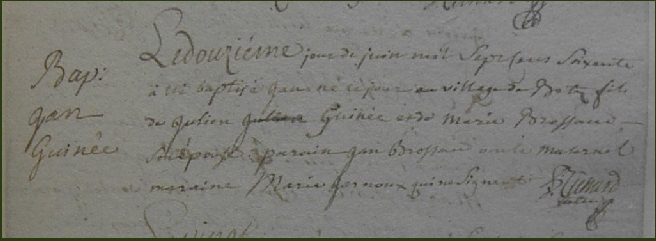 Bap:
gan
Guinée
Ledouziéme jour de juin mil Sept Cens Soixente
à été baptisé gan né ce jour au village de Botz fils
de gulien gulien Guinée et de Marie Brossaud
Son épouse parain gan Brossaud oncle maternel
maraine Marie qui ne Signent